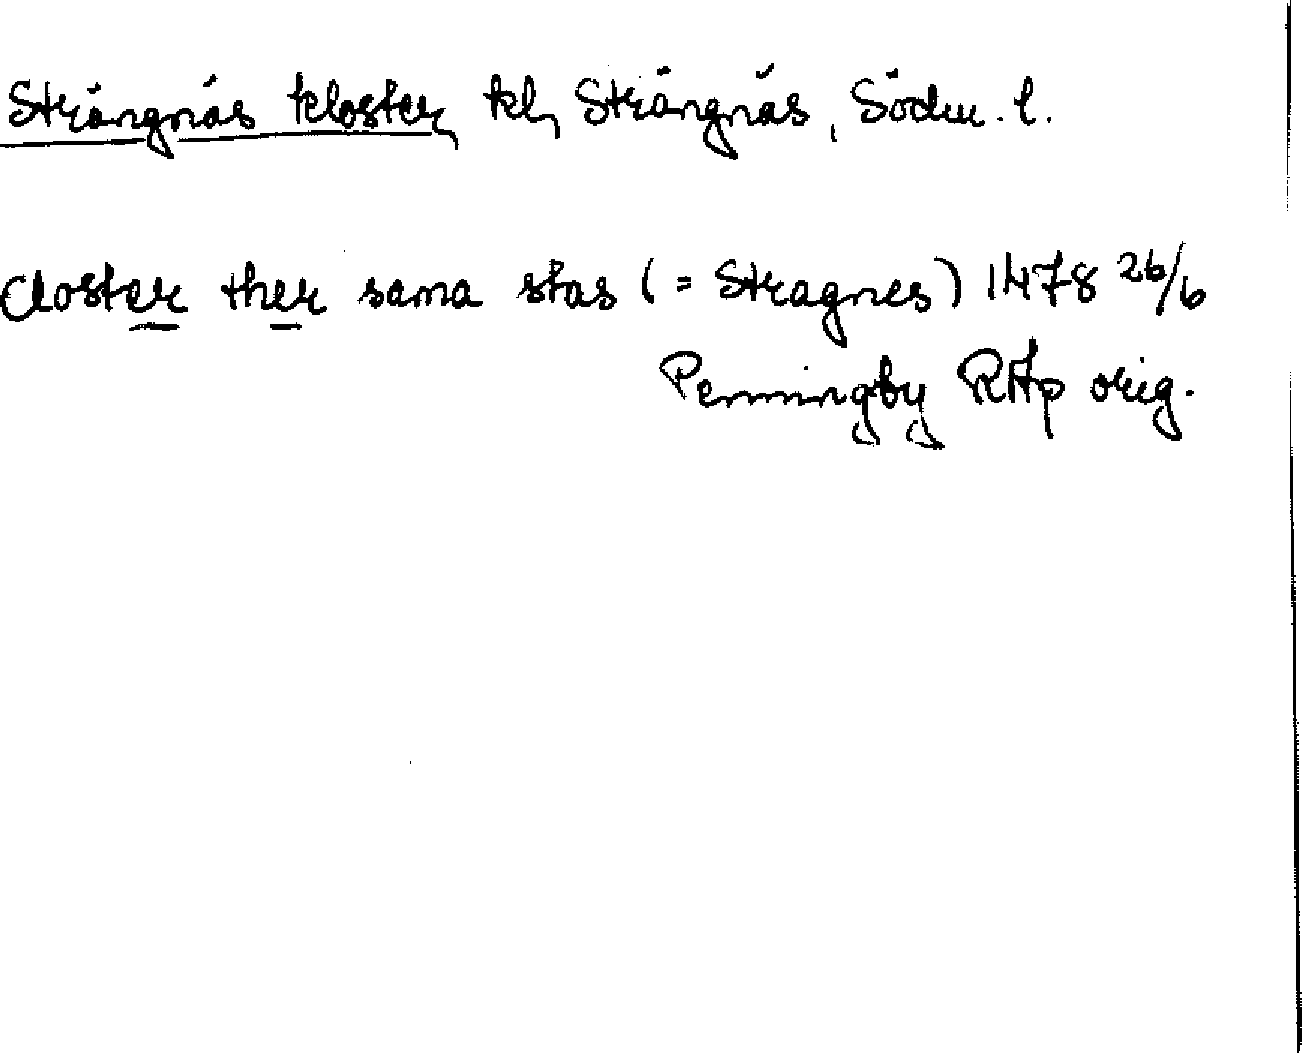 Strängnäs kloster, kl, Strängnäs, Söderm. l.
closter ther sama stas (= Stragnes) 1478 26/6
Penningby RAp orig.